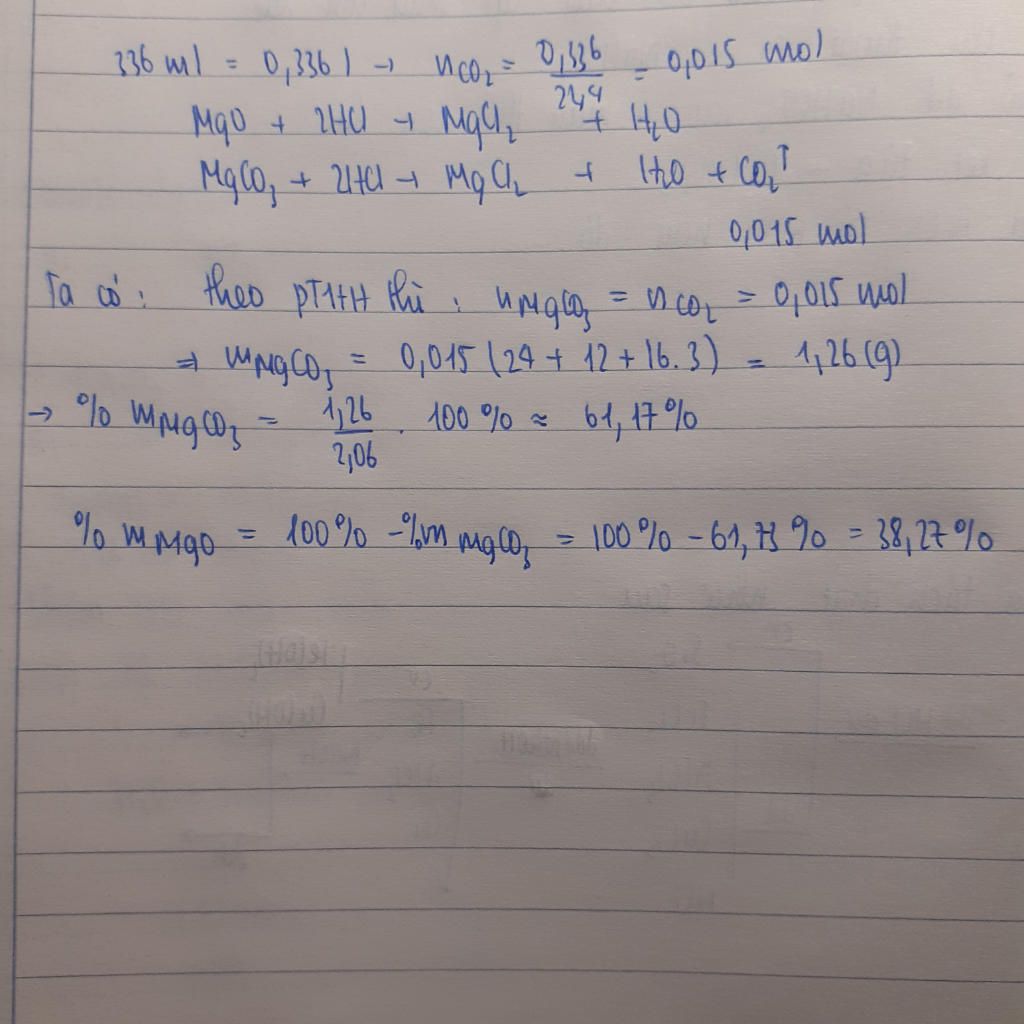 336 ml = 0,336 l → nCO₂ = 0,336/22,4 = 0,015 mol
MgO + 2HCl → MgCl₂ + H₂O
MgCO₃ + 2HCl → MgCl₂ + H₂O + CO₂↑
0,015 mol
Ta có: theo PTHH thì: nMgCO₃ = nCO₂ = 0,015 mol
⇒ mMgCO₃ = 0,015 (24 + 12 + 16.3) = 1,26 (g)
→ % mMgCO₃ = 1,26/2,06 . 100% ≈ 61,17%
% mMgO = 100% - %mMgCO₃ = 100% - 61,73% = 38,27%